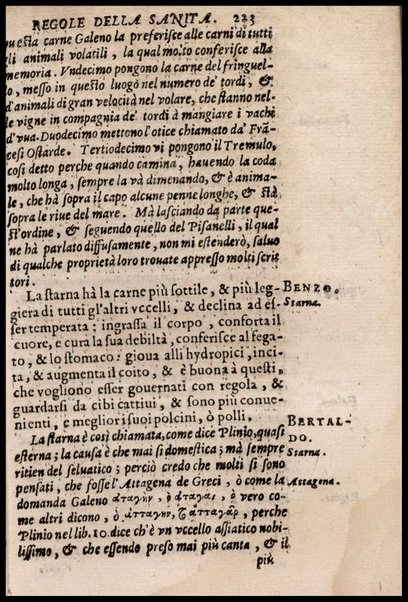 REGOLE DELLA SANITA. 223
questa carne Galeno la preferisce alle carni di tutti
gli animali volatili, la qual molto conferisce alla
memoria. Vndecimo pongono la carne del fringuel-
lo, messo in questo luogo nel numero de' tordi, &
d'animali di gran velocità nel volare, che stanno nel-
le vigne in compagnia de' tordi à mangiare i vachi
d'vua. Duodecimo mettono l'otice chiamato da' Frã-
cesi Ostarde. Tertiodecimo vi pongono il Tremulo,
cosi detto perche quando camina, hauendo la coda
molto longa, sempre la và dimenando, & è anima-
le, che hà sopra il capo alcune penne longhe, & stà
sopra le riue del mare. Mà lasciando da parte que-
st'ordine, & seguendo quello del Pisanelli, il qual
ne hà parlato diffusamente, non mi estenderò, saluo
di qualche proprietà loro trouate appresso molti scrit
tori.
La starna hà la carne più sottile, & più leg-
giera di tutti gl'altri vccelli, & declina ad es-
ser temperata: ingrassa il corpo, conforta il
cuore, e cura la sua debiltà, conferisce al fega-
to, & lo stomaco: gioua alli hydropici, inci-
ta, & augmenta il coito, & è buona à questi,
che vogliono esser gouernati con regola, &
guardarsi da cibi cattiui, & sono più conue-
nienti, e megliori suoi polcini, ò polli.
La starna è così chiamata, come dice Plinio, quasi
esterna; la causa è che mai si domestica; mà sempre
ritien del seluatico; perciò credo che molti si sono
pensati, che fosse l'Attagena de Greci, ò come la
domanda Galeno ἀταγην, ὁ ἀταγὰς, ò vero co-
me altri dicono, ὁ ἀτταγην, ἀτταγὰρ, perche
Plinio nel lib. 10. dice ch'è vn vccello assiatico nobi-
lissimo, & che essendo preso mai più canta, & il
più
BENZO.
Starna.
BERTAL-
DO.
Starna.
Attagena.